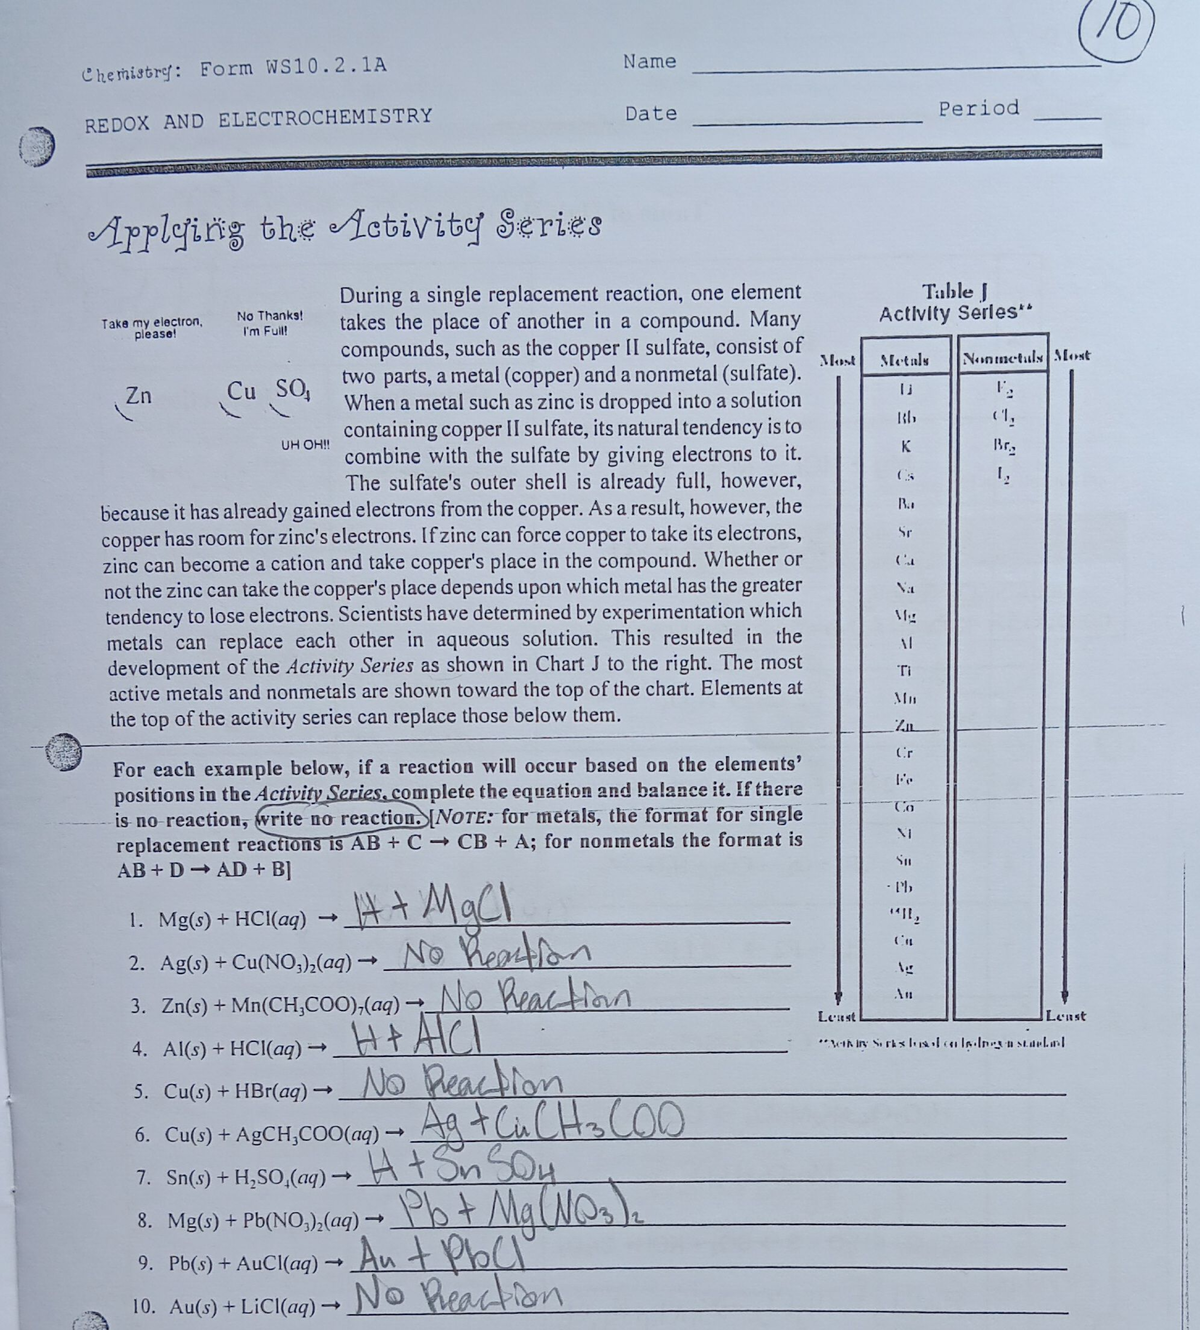 10
Chemistry: Form WS10.2.1A
Name
REDOX AND ELECTROCHEMISTRY
Date
Period
Applying the Activity Series
Take my electron, please!
No Thanks! I'm Full!
Zn
Cu SO₄
UH OH!!
During a single replacement reaction, one element
takes the place of another in a compound. Many
compounds, such as the copper II sulfate, consist of
two parts, a metal (copper) and a nonmetal (sulfate).
When a metal such as zinc is dropped into a solution
containing copper II sulfate, its natural tendency is to
combine with the sulfate by giving electrons to it.
The sulfate's outer shell is already full, however,
because it has already gained electrons from the copper. As a result, however, the
copper has room for zinc's electrons. If zinc can force copper to take its electrons,
zinc can become a cation and take copper's place in the compound. Whether or
not the zinc can take the copper's place depends upon which metal has the greater
tendency to lose electrons. Scientists have determined by experimentation which
metals can replace each other in aqueous solution. This resulted in the
development of the Activity Series as shown in Chart J to the right. The most
active metals and nonmetals are shown toward the top of the chart. Elements at
the top of the activity series can replace those below them.
Table J
Activity Series**
Most Metals Nonmetals Most
Li F₂
Rb Cl₂
K Br₂
Cs I₂
Ba
Sr
Ca
Na
Mg
Al
Ti
Mn
Zn
Cr
Fe
Co
Ni
Sn
Pb
**H₂
Cu
Ag
Au
Least Least
**Activity Series based on hydrogen standard
For each example below, if a reaction will occur based on the elements'
positions in the Activity Series, complete the equation and balance it. If there
is no reaction, write no reaction. [NOTE: for metals, the format for single
replacement reactions is AB + C → CB + A; for nonmetals the format is
AB + D → AD + B]
1. Mg(s) + HCl(aq) → H + MgCl
2. Ag(s) + Cu(NO₃)₂(aq) → No Reaction
3. Zn(s) + Mn(CH₃COO)₇(aq) → No Reaction
4. Al(s) + HCl(aq) → H + AlCl
5. Cu(s) + HBr(aq) → No Reaction
6. Cu(s) + AgCH₃COO(aq) → Ag + CuCH₃COO
7. Sn(s) + H₂SO₄(aq) → H + SnSO₄
8. Mg(s) + Pb(NO₃)₂(aq) → Pb + Mg(NO₃)₂
9. Pb(s) + AuCl(aq) → Au + PbCl
10. Au(s) + LiCl(aq) → No Reaction